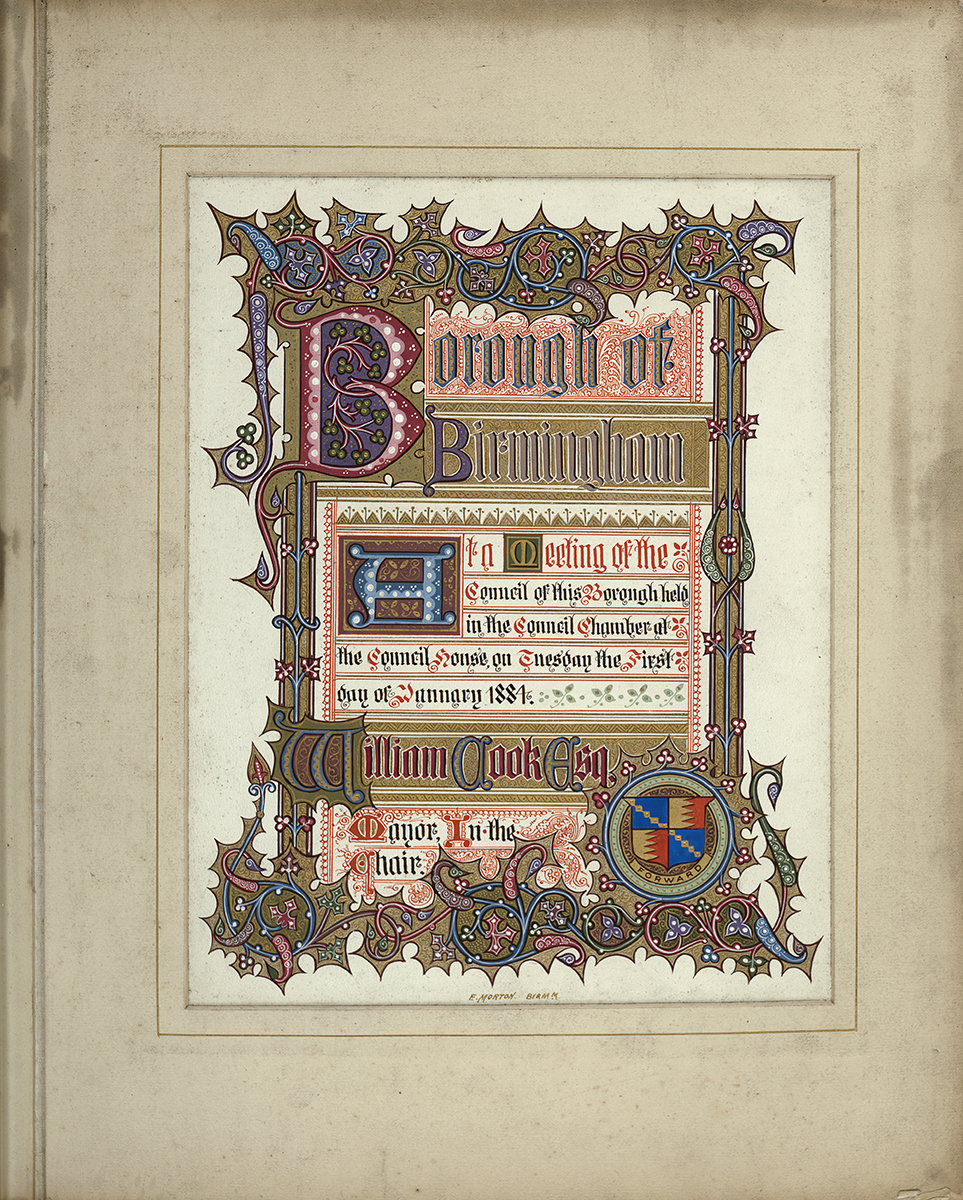 Borough of
Birmingham
At a Meeting of the
Council of this Borough held
in the Council Chamber at
the Council House, on Tuesday the First
day of January 1884.
William Cook Esq,
Mayor, In the
Chair.
FORWARD
E. MORTON. BIRM M